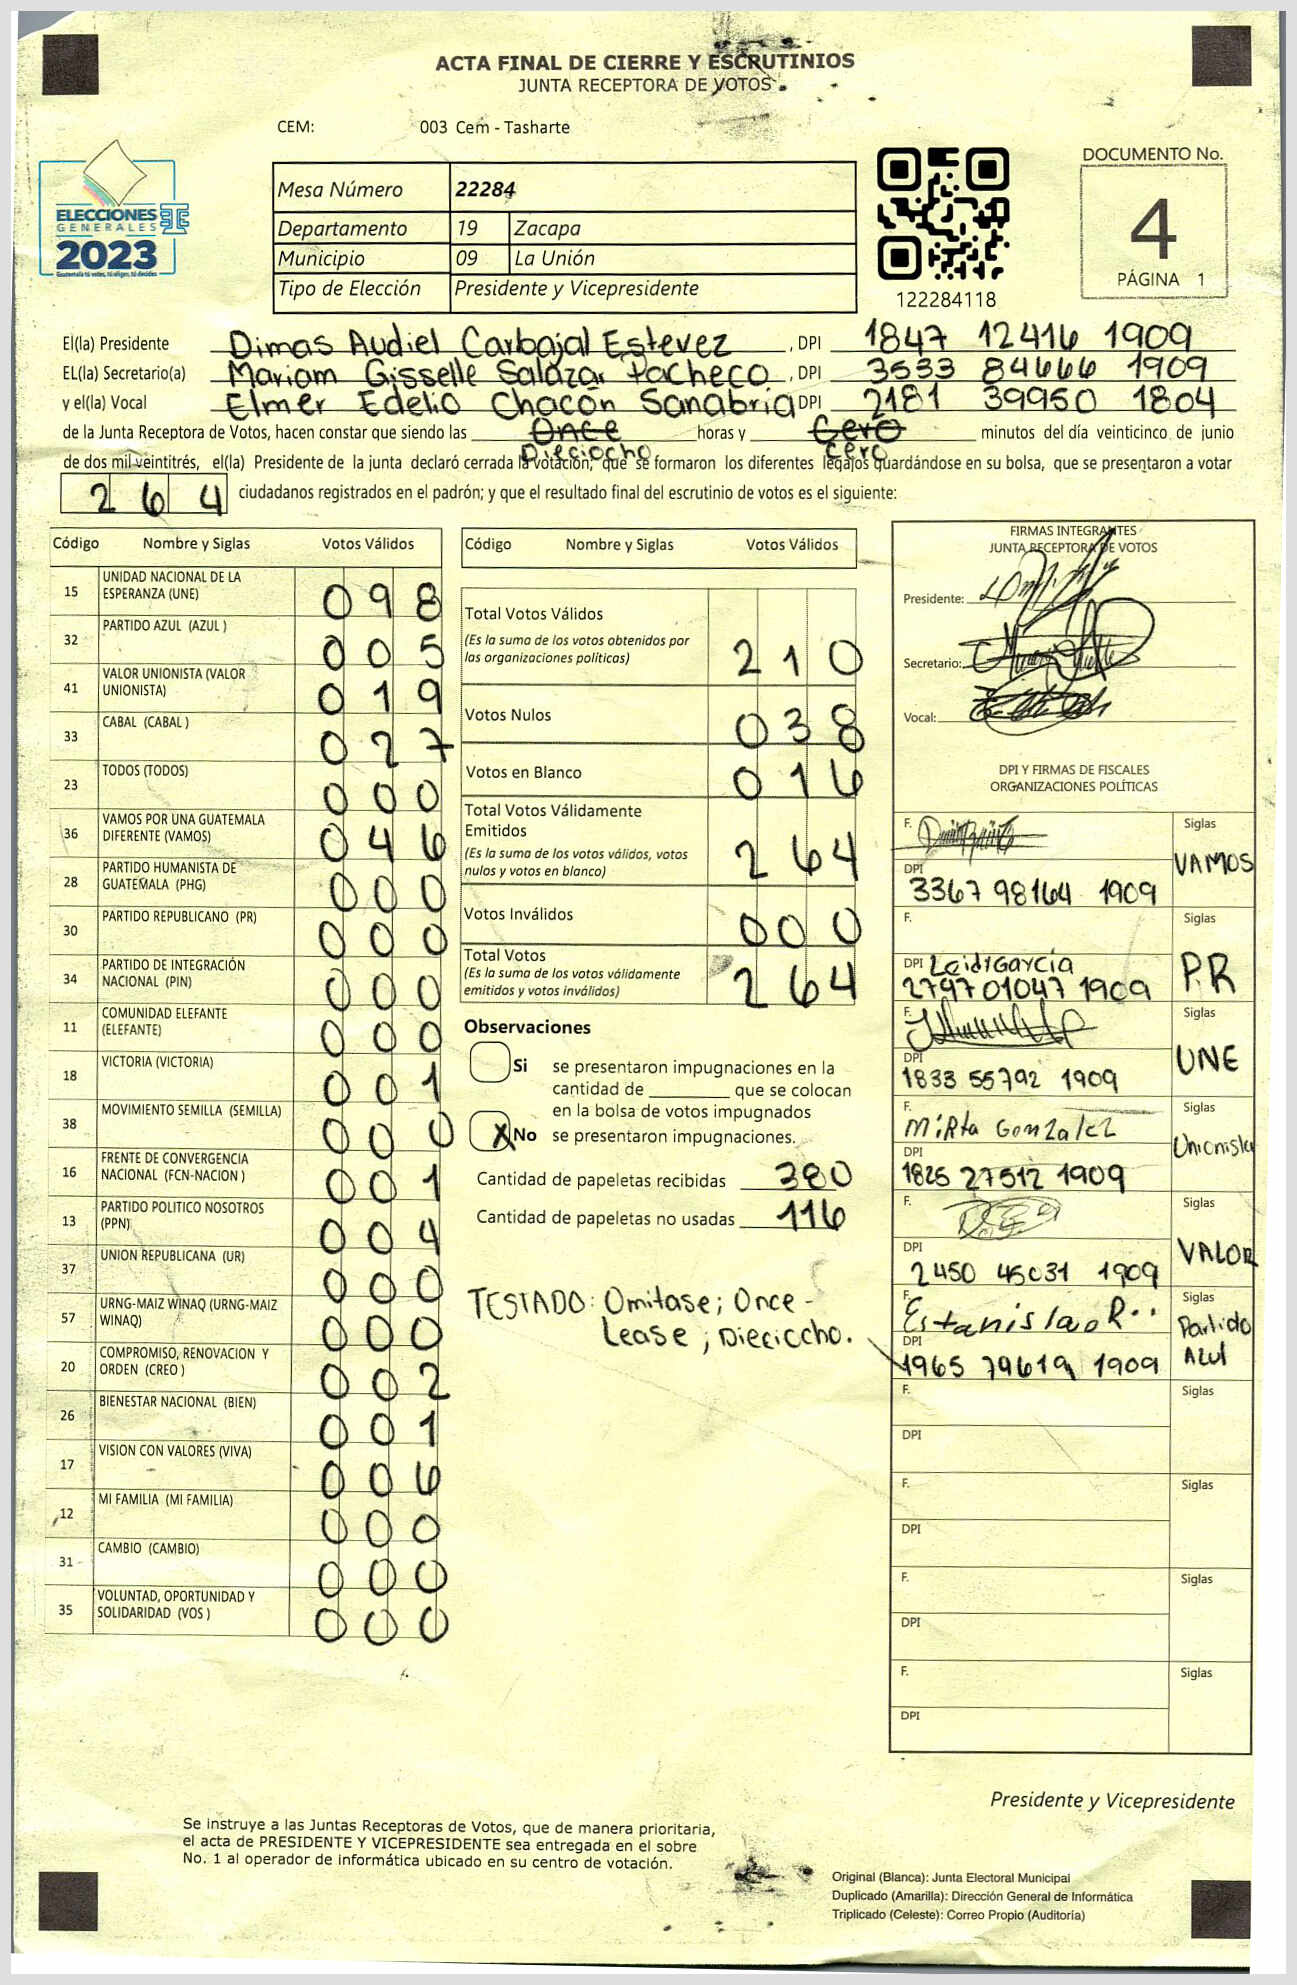 ACTA FINAL DE CIERRE Y ESCRUTINIOS
JUNTA RECEPTORA DE VOTOS
CEM: 003 Cem - Tasharte
ELECCIONES
GENERALES
2023
Guatemala tú votas, tú eliges, tú decides
Mesa Número 22284
Departamento 19 Zacapa
Municipio 09 La Unión
Tipo de Elección Presidente y Vicepresidente
122284118
DOCUMENTO No.
4
PÁGINA 1
El(la) Presidente Dimas Audiel Carbajal Estevez, DPI 1847 12416 1909
EL(la) Secretario(a) Mariam Gisselle Salazar Pacheco, DPI 3533 84666 1909
y el(la) Vocal Elmer Edelio Chacón Sanabria DPI 2181 39950 1804
de la Junta Receptora de Votos, hacen constar que siendo las Once horas y Cero minutos del día veinticinco de junio
Dieciocho Cero
de dos mil veintitrés, el(la) Presidente de la junta declaró cerrada la votación, que se formaron los diferentes legajos guardándose en su bolsa, que se presentaron a votar
264 ciudadanos registrados en el padrón; y que el resultado final del escrutinio de votos es el siguiente:
Código Nombre y Siglas Votos Válidos
15 UNIDAD NACIONAL DE LA ESPERANZA (UNE) 098
32 PARTIDO AZUL (AZUL ) 005
41 VALOR UNIONISTA (VALOR UNIONISTA) 019
33 CABAL (CABAL ) 027
23 TODOS (TODOS) 000
36 VAMOS POR UNA GUATEMALA DIFERENTE (VAMOS) 046
28 PARTIDO HUMANISTA DE GUATEMALA (PHG) 000
30 PARTIDO REPUBLICANO (PR) 000
34 PARTIDO DE INTEGRACIÓN NACIONAL (PIN) 000
11 COMUNIDAD ELEFANTE (ELEFANTE) 000
18 VICTORIA (VICTORIA) 001
38 MOVIMIENTO SEMILLA (SEMILLA) 000
16 FRENTE DE CONVERGENCIA NACIONAL (FCN-NACION ) 001
13 PARTIDO POLITICO NOSOTROS (PPN) 004
37 UNION REPUBLICANA (UR) 000
57 URNG-MAIZ WINAQ (URNG-MAIZ WINAQ) 000
20 COMPROMISO, RENOVACION Y ORDEN (CREO ) 002
26 BIENESTAR NACIONAL (BIEN) 001
17 VISION CON VALORES (VIVA) 006
12 MI FAMILIA (MI FAMILIA) 000
31 CAMBIO (CAMBIO) 000
35 VOLUNTAD, OPORTUNIDAD Y SOLIDARIDAD (VOS ) 000
Código Nombre y Siglas Votos Válidos
Total Votos Válidos
(Es la suma de los votos obtenidos por
las organizaciones políticas) 210
Votos Nulos 038
Votos en Blanco 016
Total Votos Válidamente
Emitidos
(Es la suma de los votos válidos, votos
nulos y votos en blanco) 264
Votos Inválidos 000
Total Votos
(Es la suma de los votos válidamente
emitidos y votos inválidos) 264
Observaciones
Si se presentaron impugnaciones en la
cantidad de ________ que se colocan
en la bolsa de votos impugnados
X No se presentaron impugnaciones.
Cantidad de papeletas recibidas 380
Cantidad de papeletas no usadas 116
TESTADO: Omitase; Once -
Lease; Dieciocho.
FIRMAS INTEGRANTES
JUNTA RECEPTORA DE VOTOS
Presidente:
Secretario:
Vocal:
DPI Y FIRMAS DE FISCALES
ORGANIZACIONES POLÍTICAS
F. Siglas
VAMOS
DPI
3367 98164 1909
F. Siglas
PR
DPI Leidi García
2797 01047 1909
F. Siglas
UNE
DPI
1833 55792 1909
F. Siglas
Mirta Gonzalez
Unionista
DPI
1825 27512 1909
F. Siglas
VALOR
DPI
2450 45031 1909
F. Siglas
Estanislao R..
Partido
Azul
DPI
1965 79619 1909
F. Siglas
DPI
F. Siglas
DPI
F. Siglas
DPI
F. Siglas
DPI
Presidente y Vicepresidente
Se instruye a las Juntas Receptoras de Votos, que de manera prioritaria,
el acta de PRESIDENTE Y VICEPRESIDENTE sea entregada en el sobre
No. 1 al operador de informática ubicado en su centro de votación.
Original (Blanca): Junta Electoral Municipal
Duplicado (Amarilla): Dirección General de Informática
Triplicado (Celeste): Correo Propio (Auditoría)